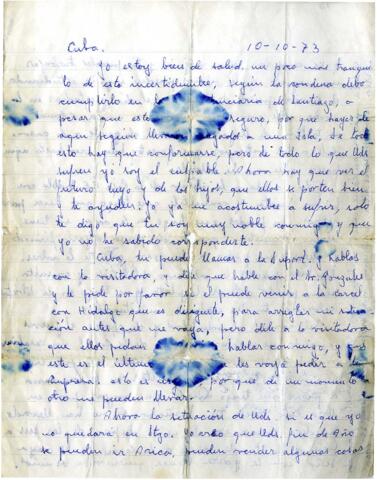 Cuba. 10-10-73
Yo estoy bien de salud, un poco más tranqui
lo de esta incertidumbre, según la condena debo
cumplirlo en la Penitenciaria de Santiago, a
pesar que esto seguro, por que hayer de
aquí seguían llevando a una Isla, de todo
esto hay que conformarse, pero de todo lo que Uds
sufren yo soy el culpable. Ahora hay que ver el
futuro tuyo y de los hijos, que ellos se porten bien
y te ayuden. Yo ya me acostumbré a sufrir, solo
te digo que tu soy muy noble conmigo y que
yo no he sabido corresponderte.
Cuba, tu puede llamar a la Supert. y hablas
con la visitadora, y dile que hable con el Sr. Gonzalez
y le pide por favor si él puede venir a la carcel
con Hidalgo que es dirigente, para arreglar mi situa
ción antes que me vaya, pero dile a la visitadora
que ellos pidan hablar conmigo, y
este es el último les voy a pedir a la
Empresa. esto es por que de un momento
a otro me pueden llevar.
Ahora la situación de Uds. si el que yo
me quedara en Stgo. Yo creo que Uds. fin de Año
se pueden ir Arica, pueden vender algunas cosas